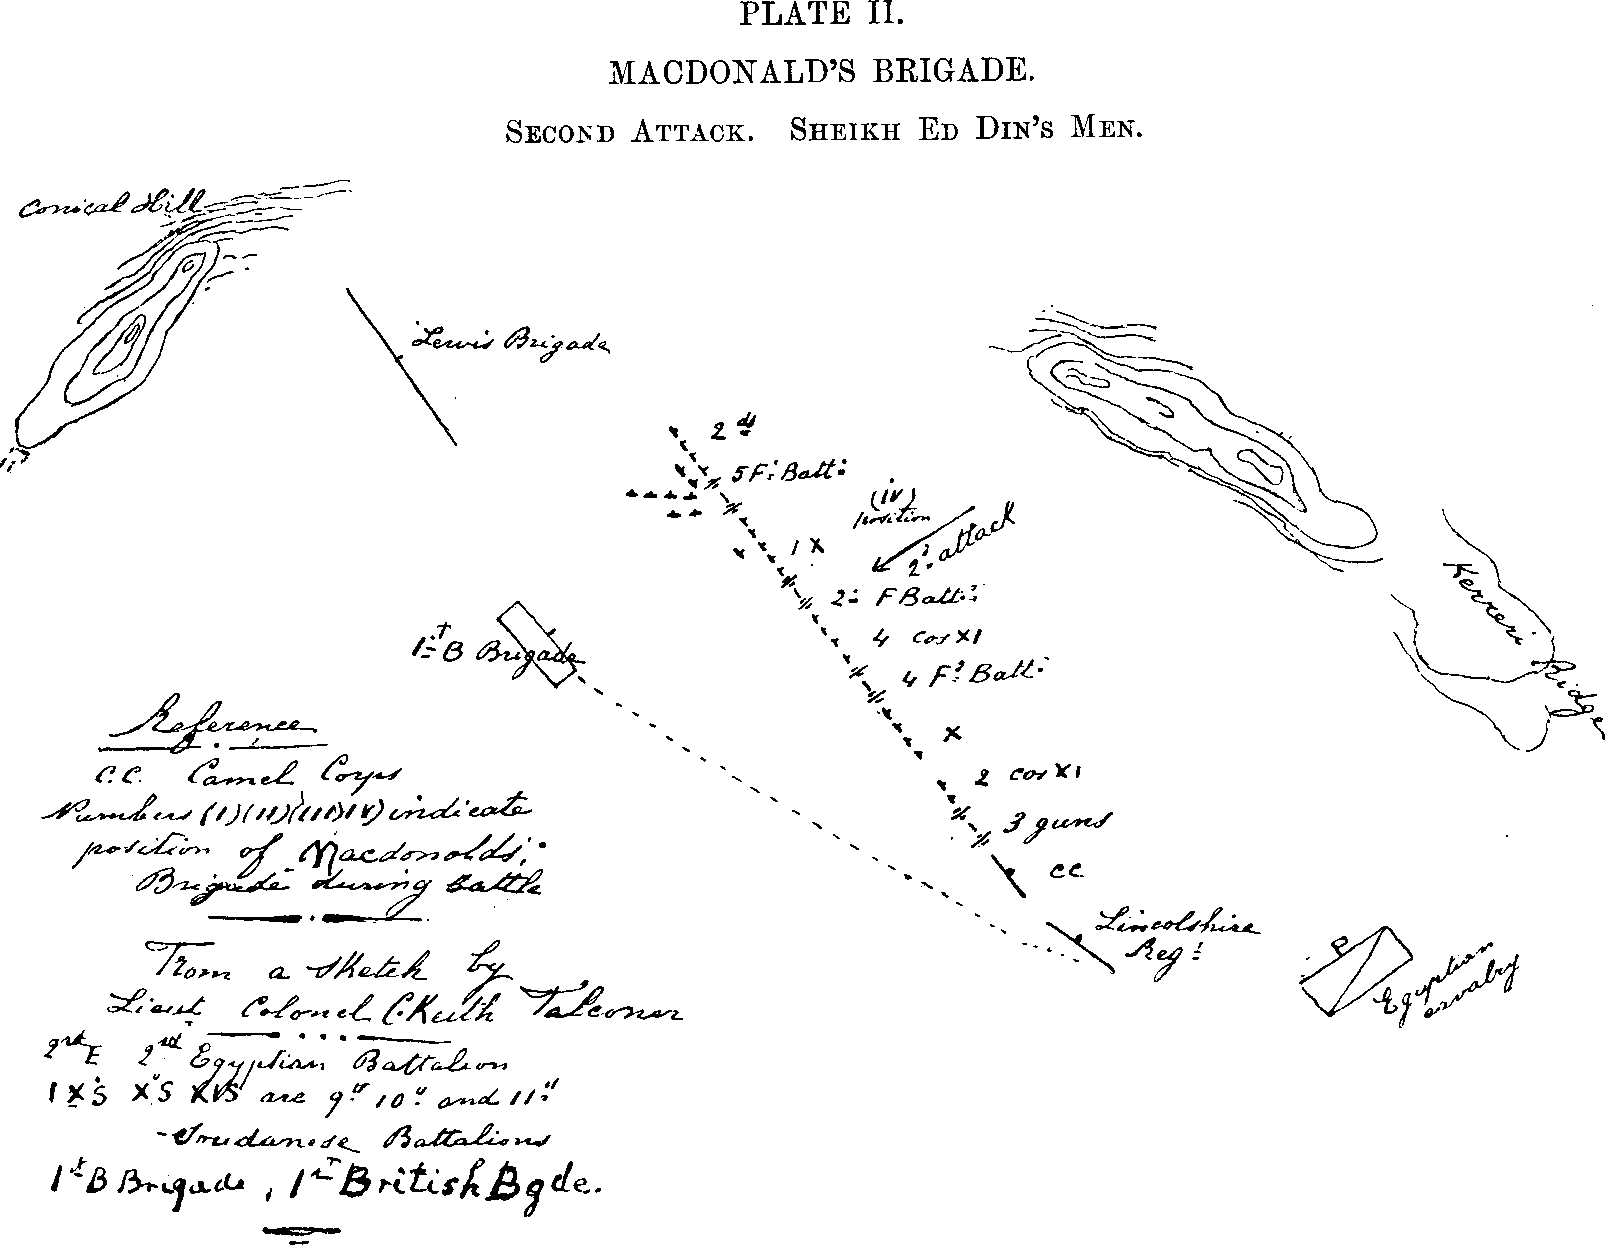 PLATE II.
MACDONALD'S BRIGADE.
SECOND ATTACK. SHEIKH ED DIN'S MEN.
Conical Hill
Lewis Brigade
2d
5 F: Batt:
(iv)
position
2d attack
1 X
2: F Batt:
4 cos XI
4 F: Batt:
X
2 cos XI
3 guns
CC
1st B Brigade
Lincolshire
Regt
Egyptian
cavalry
Kerreri Ridge
Reference
C.C. Camel Corps
Numbers (I)(II)(III)(IV) indicate
position of Macdonalds'
Brigade during battle
From a sketch by
Lieut Colonel C. Keith Falconer
2nd E 2nd Egyptian Battalion
IXS XS XIS are 9th 10th and 11th
Soudanese Battalions
1st B Brigade, 1st British Bgde.